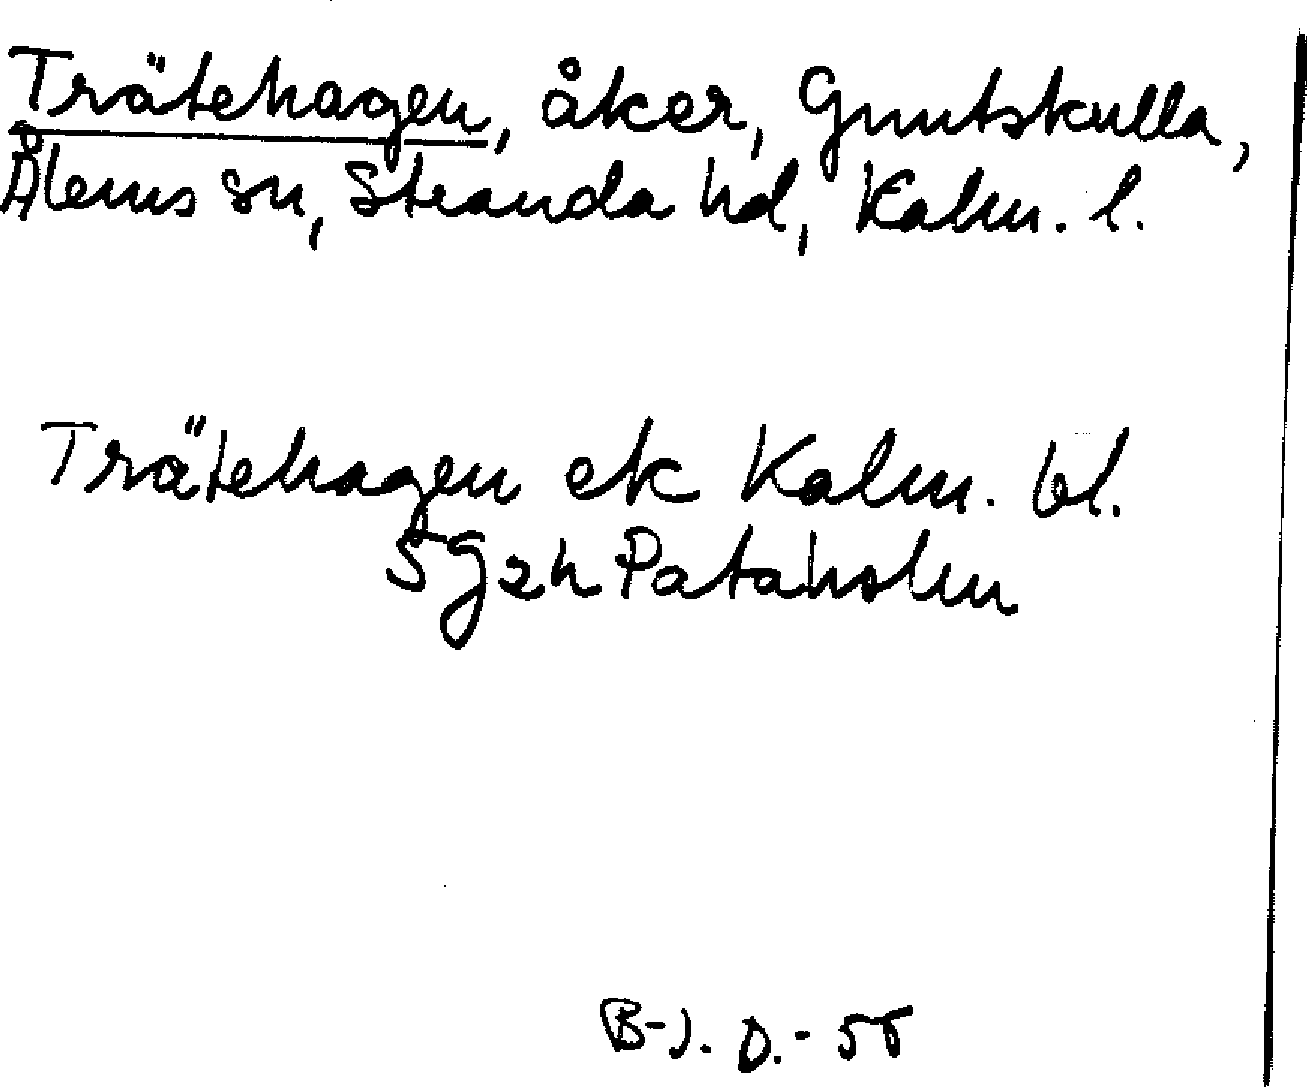 Trätehagen, åker, Gnutskulla,
Ålems sn, Stranda hd, Kalm. l.
Trätehagen ek Kalm. bl.
5g2h Pataholm
B-J. D. - 55